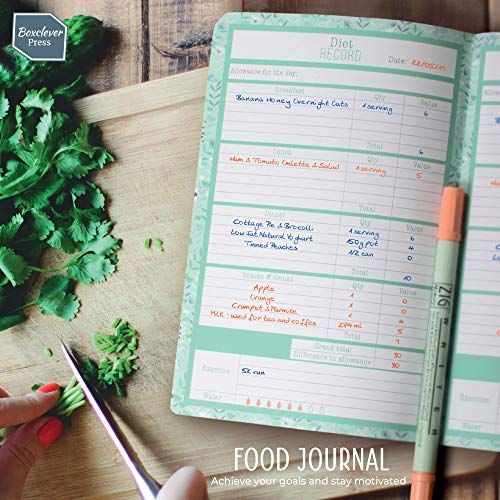 Boxclever
Press
Diet
RECORD
Date: 22/05/19
Allowance for the day:
Breakfast Qty Value
Banana Honey Overnight Oats 1 serving 6
Total 6
Lunch Qty Value
Ham & Tomato Omlette & Salad 1 serving 5
Total 5
Dinner Qty Value
Cottage Pie & Brocolli 1 serving 6
Low Fat Natural Yoghurt 150g pot 4
Tinned Peaches 1/2 can 0
Total 10
Snacks & drinks Qty Value
Apple 1 0
Orange 1 0
Crumpet & Marmite 1 4
Milk - used for tea and coffee 284ml 5
Total 9
Grand total 30
Difference to allowance 30
Exercise 5k run
Water
ZIG
WRITER
FOOD JOURNAL
Achieve your goals and stay motivated